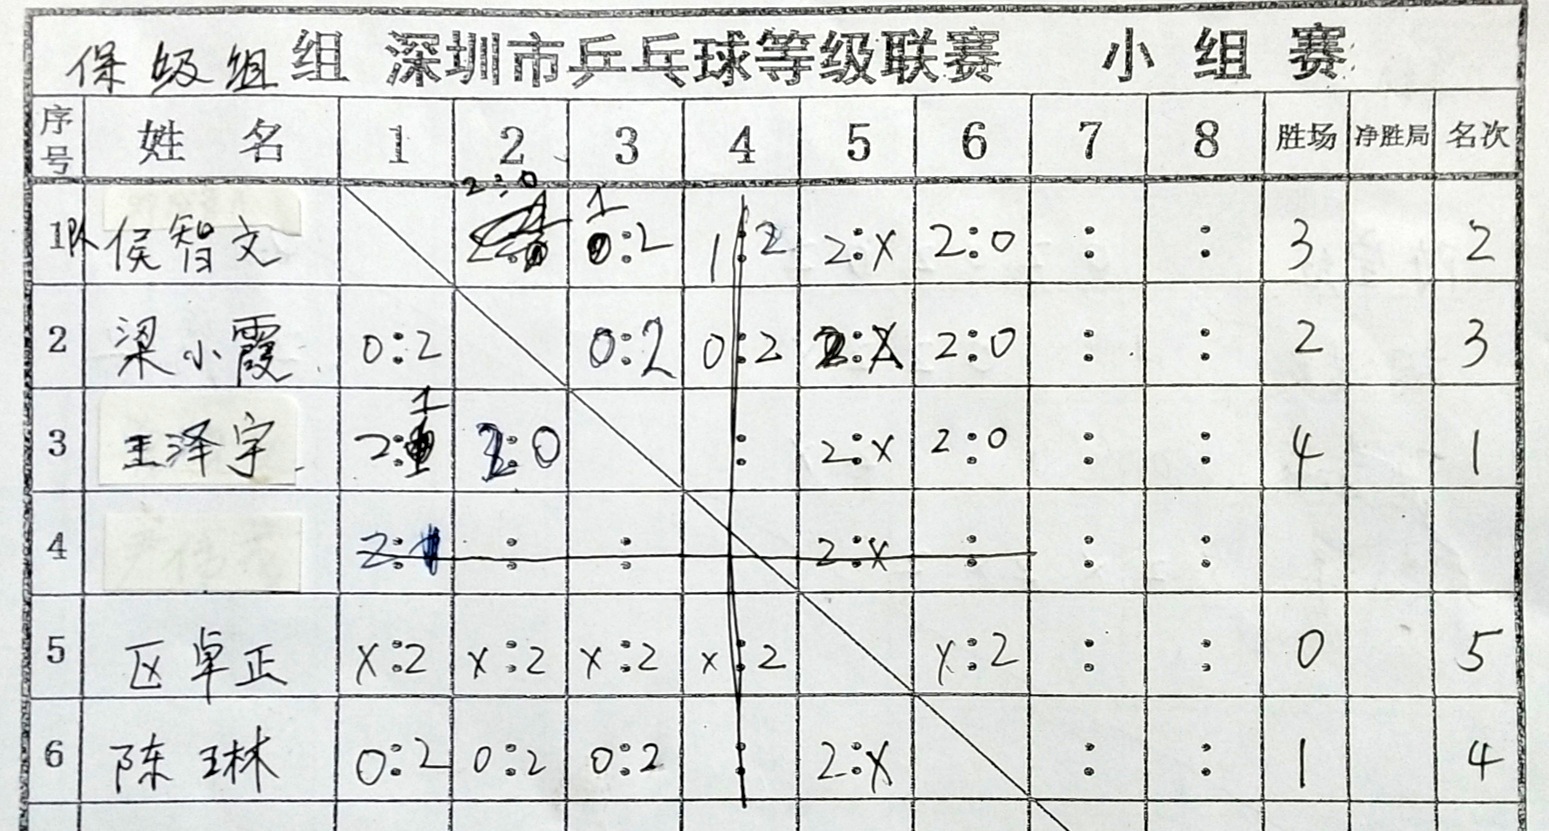 保级组 组 深圳市乒乓球等级联赛 小组赛
序号 姓名 1 2 3 4 5 6 7 8 胜场 净胜局 名次
1 侯智文 2:0 1:2 1:2 2:X 2:0 : : 3 2
2 梁小霞 0:2 0:2 0:2 2:X 2:0 : : 2 3
3 王泽宇 2:1 2:0 : 2:X 2:0 : : 4 1
4 2: : : 2:X : : :
5 区卓正 X:2 X:2 X:2 X:2 X:2 : : 0 5
6 陈琳 0:2 0:2 0:2 : 2:X : : 1 4